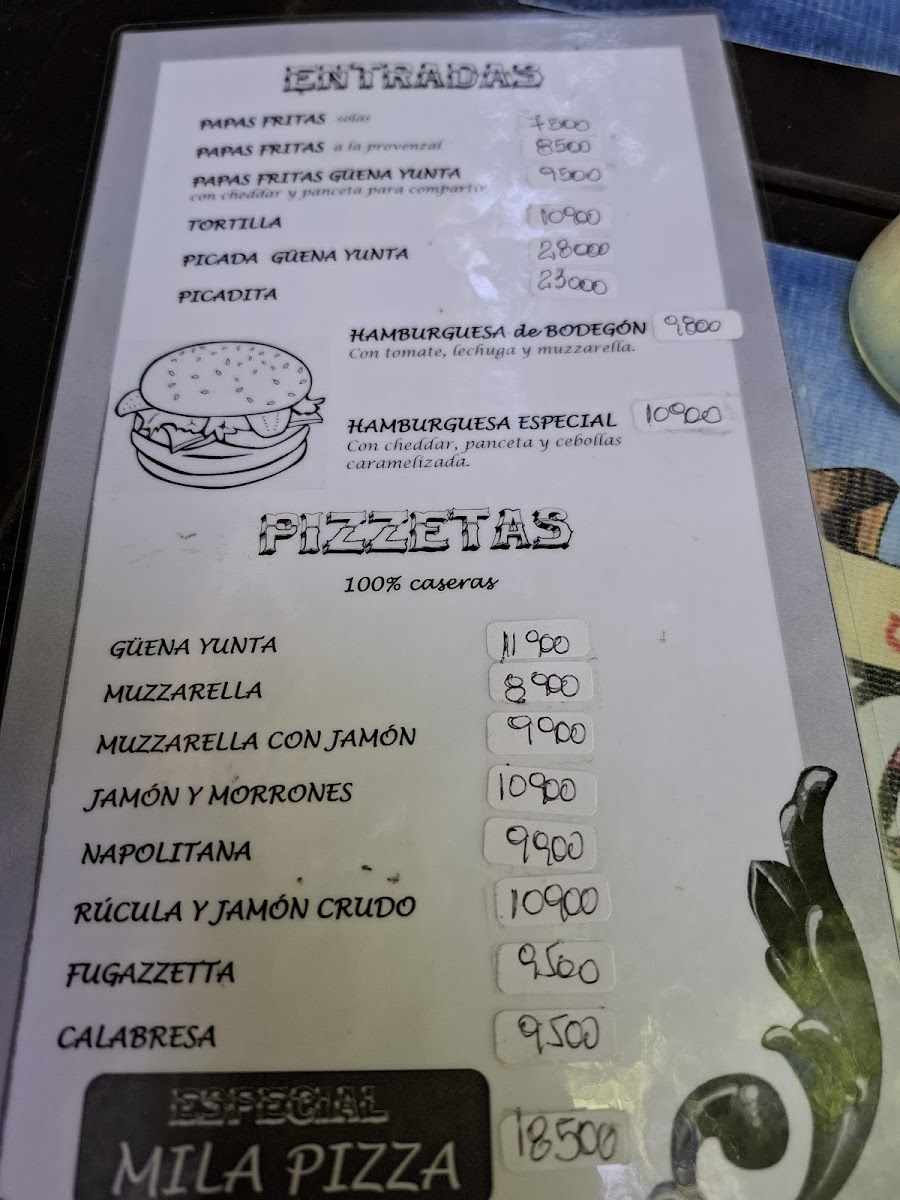 ENTRADAS
PAPAS FRITAS solas 7500
PAPAS FRITAS a la provenzal 8500
PAPAS FRITAS GÜENA YUNTA 9500
con cheddar y panceta para compartir
TORTILLA 10900
PICADA GÜENA YUNTA 28000
PICADITA 23000
HAMBURGUESA de BODEGÓN 9800
Con tomate, lechuga y muzzarella.
HAMBURGUESA ESPECIAL 10900
Con cheddar, panceta y cebollas
caramelizada.
PIZZETAS
100% caseras
GÜENA YUNTA 11900
MUZZARELLA 8900
MUZZARELLA CON JAMÓN 9900
JAMÓN Y MORRONES 10900
NAPOLITANA 9900
RÚCULA Y JAMÓN CRUDO 10900
FUGAZZETTA 9500
CALABRESA 9500
ESPECIAL
MILA PIZZA 18500